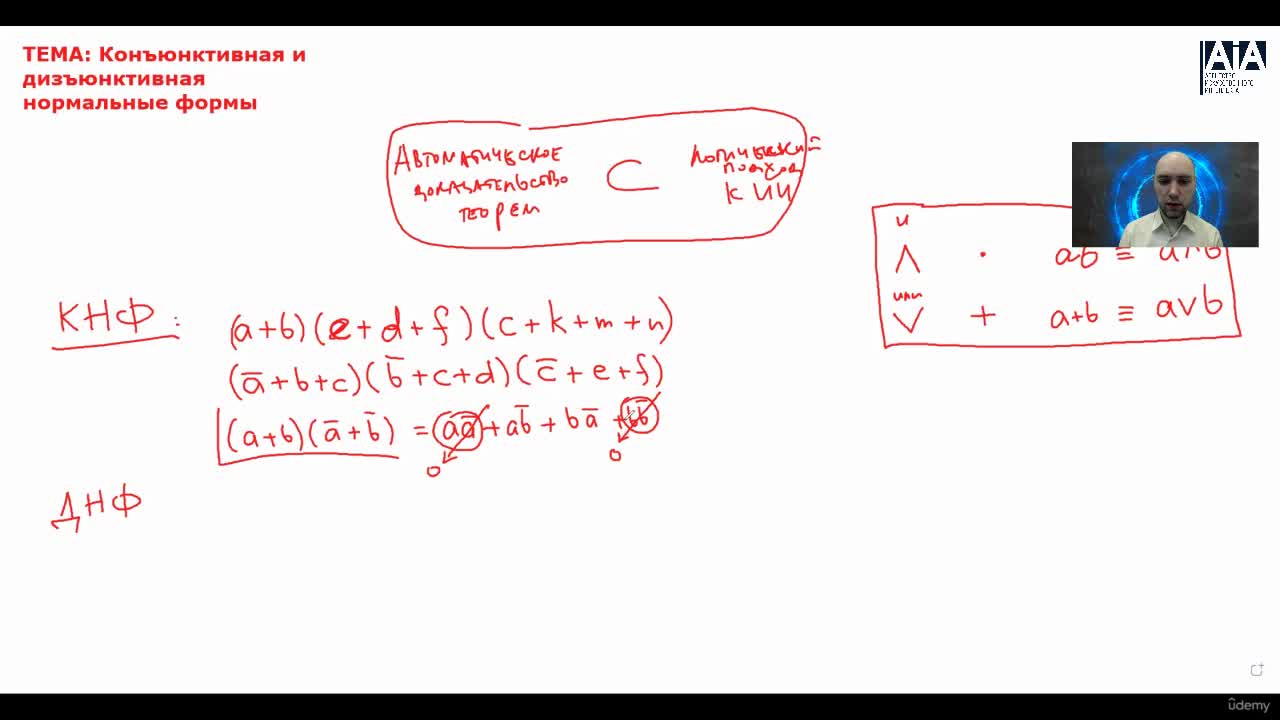 ТЕМА: Конъюнктивная и
дизъюнктивная
нормальные формы
AiA
Автоматическое
доказательство
теорем
⊂
Логический
подход
к ИИ
и
∧ · ab ≡ a∧b
или
∨ + a+b ≡ a∨b
КНФ: (a+b)(e+d+f)(c+k+m+n)
(a̅+b+c)(b̅+c+d)(c̅+e+f)
(a+b)(a̅+b̅) = aa̅+ab̅+ba̅+bb̅
0 0
ДНФ
ûdemy